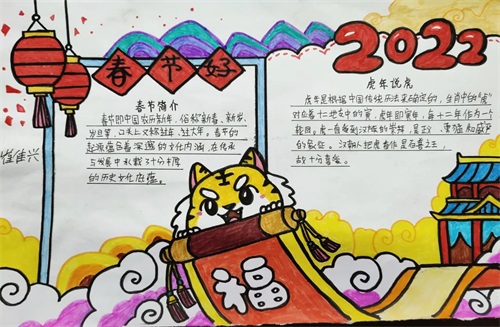 春节好
2022
春节简介
春节即中国农历新年，俗称新春、新岁、
岁旦等，口头上又称过年、过大年。春节的
起源蕴含着深邃的文化内涵，在传承
与发展中承载了十分丰厚
的历史文化底蕴。
虎年说虎
虎年是根据中国传统历法来确定的，生肖中的"虎"
对应着十二地支中的寅，虎年即寅年，每十二年作为一
轮回。虎一直受到汉族的崇拜，是
的象征。汉朝人把虎看作是百兽之王，
故十分喜爱。
佳兴
福